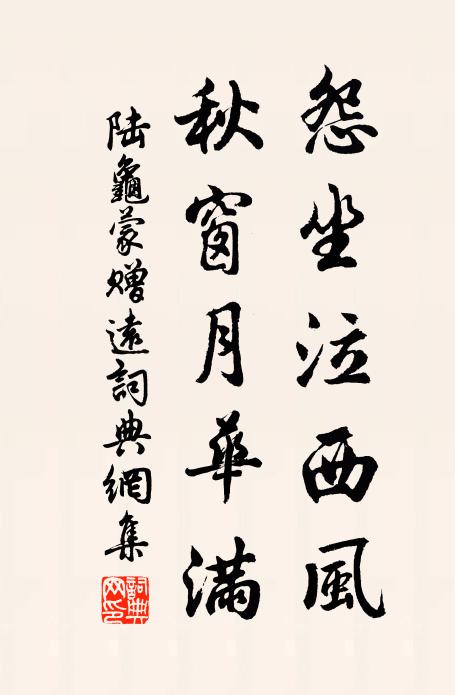 怨坐泣西風
秋窗月華滿
陸龜蒙贈遠詞典網集
詞典网印